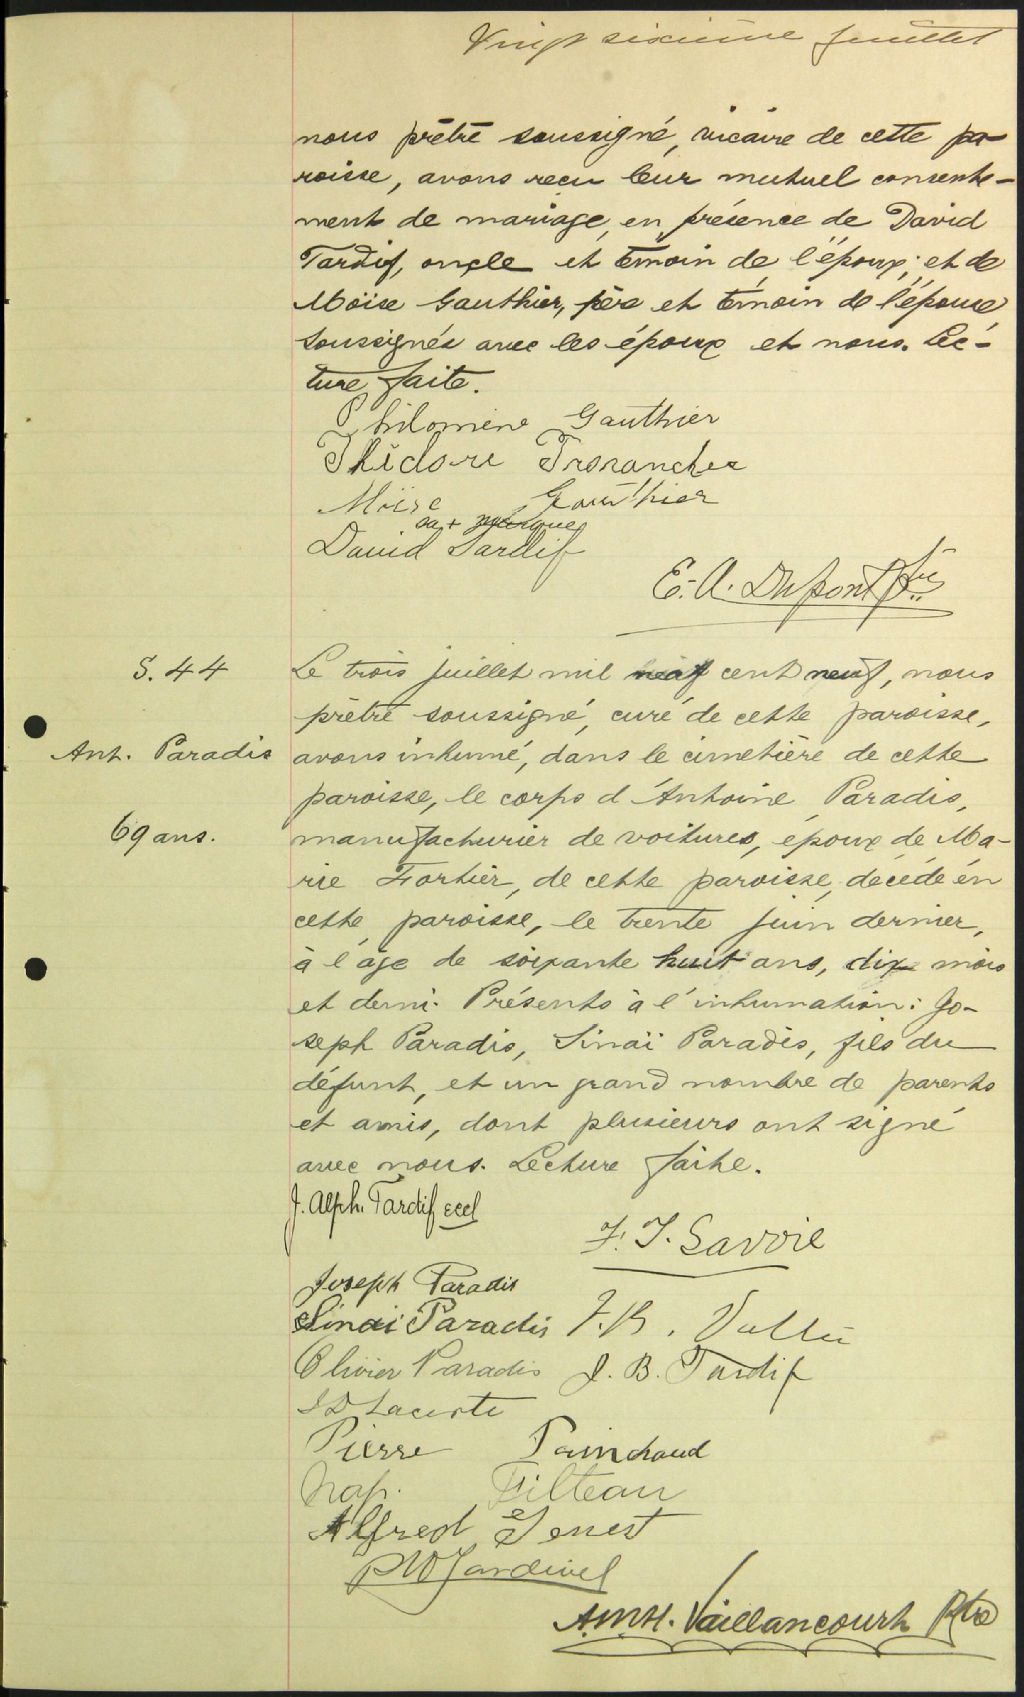 Vingt sixième feuillet
nous prêtre soussigné, vicaire de cette pa-
roisse, avons reçu leur mutuel consente-
ment de mariage, en présence de David
Tardif, oncle et témoin de l'époux; et de
Moïse Gauthier, père et témoin de l'épouse
soussignés avec les époux et nous. Lec-
ture faite.
Philomène Gauthier
Moïse Gauthier
sa + marque
David Tardif
E.-A. Dupont Ptre
S. 44
Ant. Paradis
69 ans.
Le trois juillet mil neuf cent neuf, nous
prêtre soussigné, curé de cette paroisse,
avons inhumé, dans le cimetière de cette
paroisse, le corps d'Antoine Paradis,
manufacturier de voitures, époux de Ma-
rie Fortier, de cette paroisse, décédé en
cette paroisse, le trente juin dernier,
à l'âge de soixante huit ans, dix mois
et demi. Présents à l'inhumation: Jo-
seph Paradis, Sinaï Paradis, fils du
défunt, et un grand nombre de parents
et amis, dont plusieurs ont signé
avec nous. Lecture faite.
J. Alph. Tardif eccl
F. T. Savoie
Joseph Paradis
Sinai Paradis
Olivier Paradis J. B. Tardif
Pierre Painchaud
Nap. Filteau
Alfred Genest
A.M.H. Vaillancourt Ptre